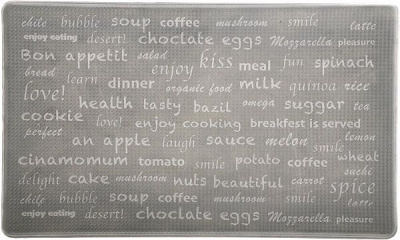 chile bubble soup coffee mushroom smile latte
enjoy eating desert! choclate eggs Mozzarella pleasure
Bon appetit salad enjoy kiss meal fun spinach
bread learn dinner organic food milk quinoa rice
love! health tasty bazil omega suggar tea
cookie love! enjoy cooking breakfast is served
perfect an apple laugh sauce melon smile lemon
cinamomum tomato smile potato coffee wheat
delight cake mushroom nuts beautiful carrot spice suchi
chile bubble soup coffee mushroom smile latte
enjoy eating desert! choclate eggs Mozzarella pleasure